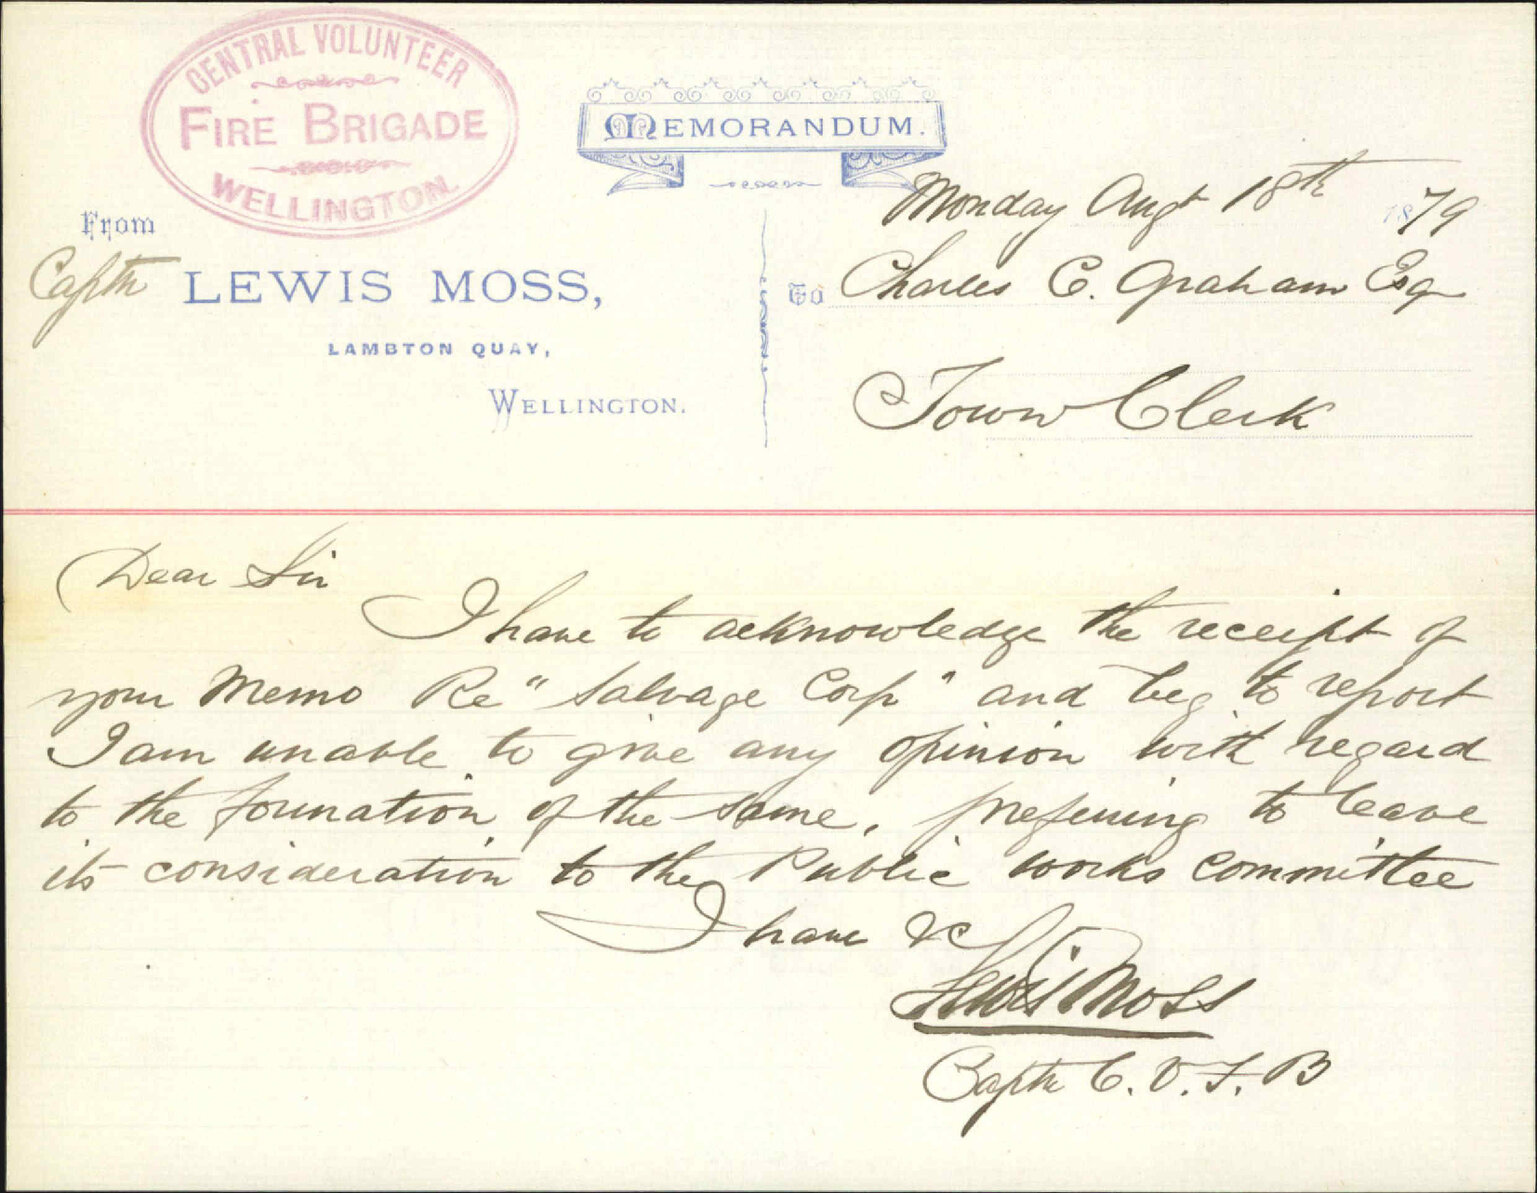 CENTRAL VOLUNTEER
FIRE BRIGADE
WELLINGTON.
MEMORANDUM.
Monday Augt 18th 1879
From
Captn LEWIS MOSS,
LAMBTON QUAY,
WELLINGTON.
To Charles C. Graham Esq
Town Clerk
Dear Sir
I have to acknowledge the receipt of
your Memo Re "Salvage Corp" and beg to report
I am unable to give any opinion with regard
to the founation of the same, prefering to leave
its consideration to the Public works committee
I have &c
Lewis Moss
Captn C. V. F. B